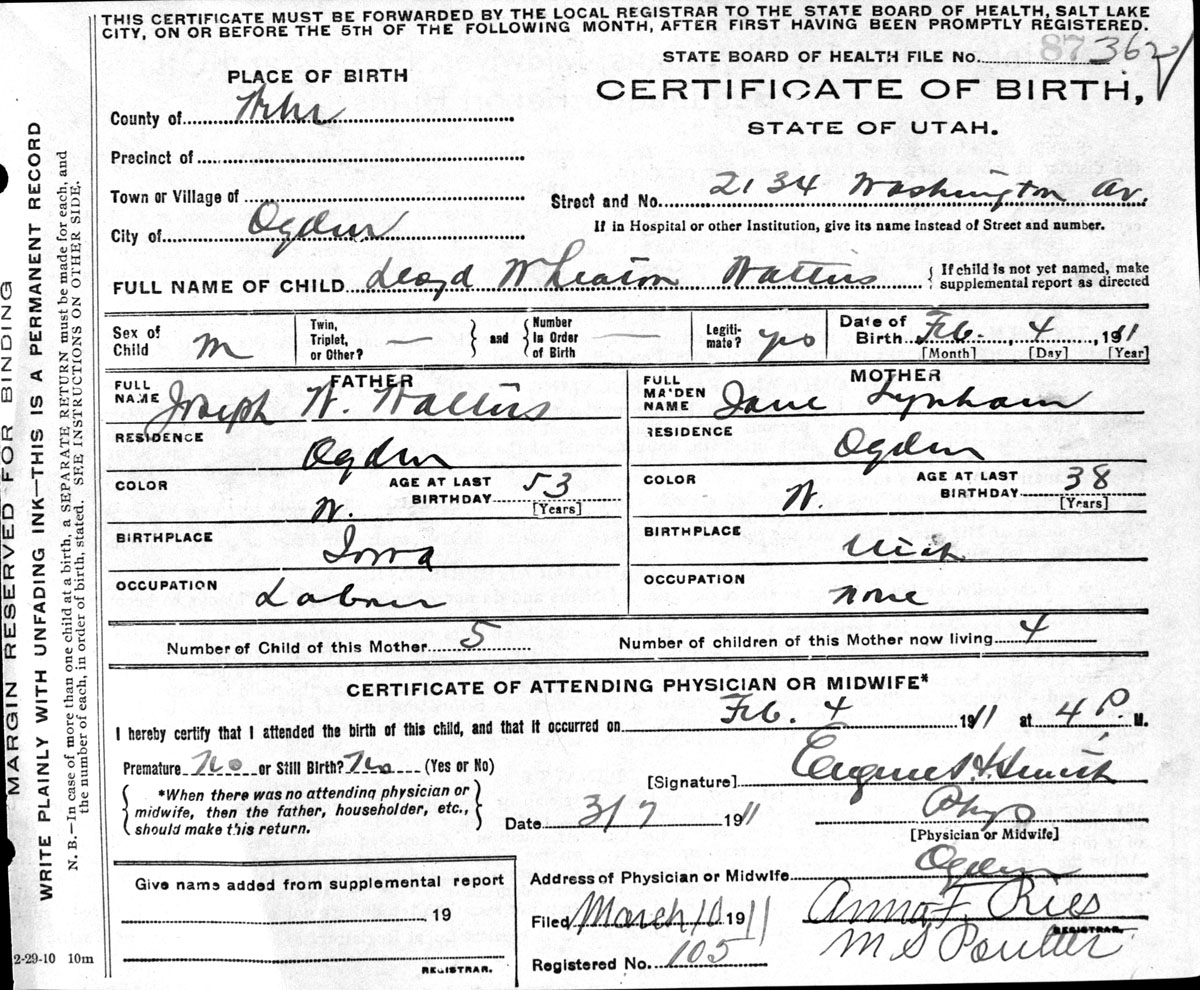 THIS CERTIFICATE MUST BE FORWARDED BY THE LOCAL REGISTRAR TO THE STATE BOARD OF HEALTH, SALT LAKE
CITY, ON OR BEFORE THE 5TH OF THE FOLLOWING MONTH, AFTER FIRST HAVING BEEN PROMPTLY REGISTERED.
STATE BOARD OF HEALTH FILE No. 87 362
PLACE OF BIRTH
CERTIFICATE OF BIRTH,
STATE OF UTAH.
County of
Precinct of
Town or Village of
Street and No. 2134 Washington Av.
City of Ogden
If in Hospital or other Institution, give its name instead of Street and number.
FULL NAME OF CHILD Lloyd Wheaton Watters
{ If child is not yet named, make
supplemental report as directed
Sex of Child M
Twin, Triplet, or Other? —
and
Number In Order of Birth —
Legitimate? yes
Date of Birth Feb. 4, 1911
[Month] [Day] [Year]
FATHER
FULL NAME Joseph W. Watters
RESIDENCE Ogden
COLOR W.
AGE AT LAST BIRTHDAY 53
[Years]
BIRTHPLACE Iowa
OCCUPATION Laborer
MOTHER
FULL MAIDEN NAME Jane Lynham
RESIDENCE Ogden
COLOR W.
AGE AT LAST BIRTHDAY 38
[Years]
BIRTHPLACE Mich.
OCCUPATION None
Number of Child of this Mother 5
Number of children of this Mother now living 4
CERTIFICATE OF ATTENDING PHYSICIAN OR MIDWIFE*
I hereby certify that I attended the birth of this child, and that it occurred on Feb. 4 1911 at 4 P. M.
Premature No or Still Birth? No (Yes or No)
[Signature] Eugene H. Smith
*When there was no attending physician or
midwife, then the father, householder, etc.,
should make this return.
Date 3/7 1911
Phys
[Physician or Midwife]
Address of Physician or Midwife Ogden
Give name added from supplemental report
19
REGISTRAR.
Filed March 10 1911
Anna F. Ries
REGISTRAR.
M S Poulter
Registered No. 105
2-29-10 10m
MARGIN RESERVED FOR BINDING
WRITE PLAINLY WITH UNFADING INK—THIS IS A PERMANENT RECORD
N. B.—In case of more than one child at a birth, a SEPARATE RETURN must be made for each, and
the number of each, in order of birth, stated. SEE INSTRUCTIONS ON OTHER SIDE.